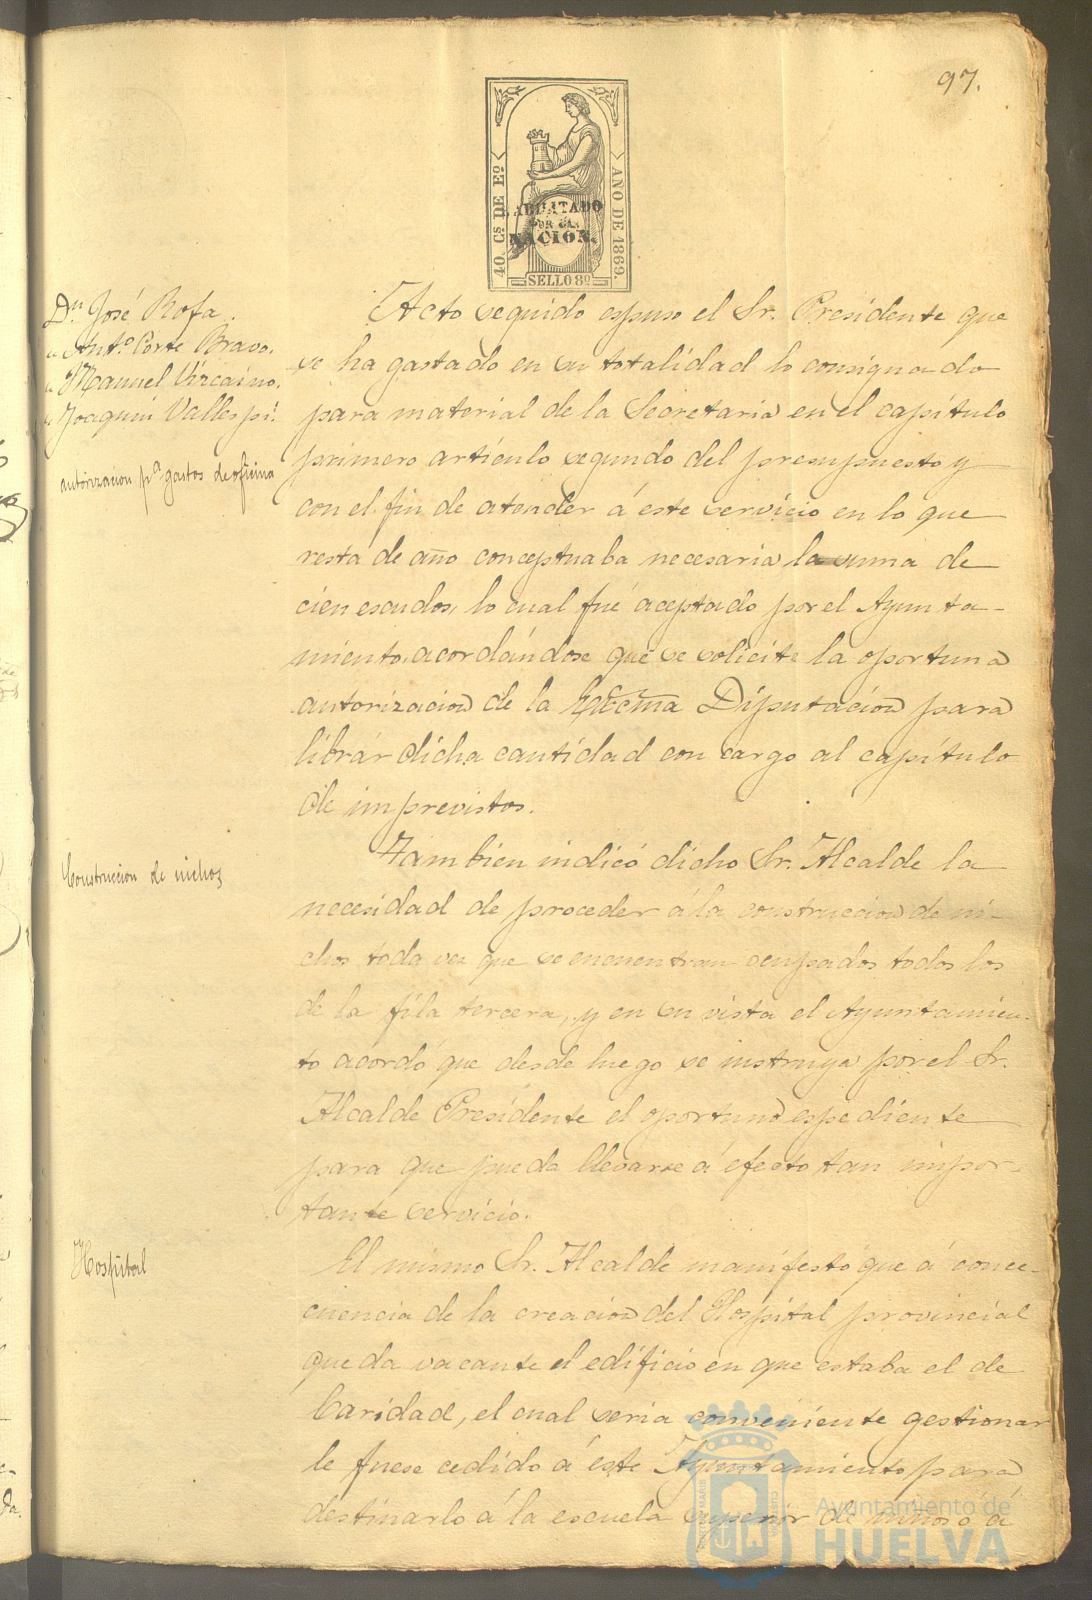 97.
40. Cs. DE Eo.
AÑO DE 1869.
HABILITADO
POR LA
NACION.
SELLO 8º
Dn José Rofa.
" Antº Corte Bravo.
" Manuel Vizcaino.
" Joaquin Vallespi.
autorizacion pª gastos de oficina
Acto seguido espuso el Sr. Presidente que
se ha gastado en su totalidad lo consignado
para material de la Secretaria en el capítulo
primero artículo segundo del presupuesto y
con el fin de atender á este servicio en lo que
resta de año conceptuaba necesaria la suma de
cien escudos, lo cual fué aceptado por el Ayunta-
miento, acordándose que se solicite la oportuna
autorizacion de la Excma Diputacion para
librar dicha cantidad con cargo al capítulo
de imprevistos.
Construccion de nichos
Tambien indicó dicho Sr. Alcalde la
necesidad de proceder á la construccion de ni-
chos toda vez que se encuentran ocupados todos los
de la fila tercera, y en su vista el Ayuntamien-
to acordó que desde luego se instruya por el Sr.
Alcalde Presidente el oportuno espediente
para que pueda llevarse á efecto tan impor-
tante servicio.
Hospital
El mismo Sr. Alcalde manifestó que á conse-
cuencia de la creacion del Hospital provincial
queda vacante el edificio en que estaba el de
Caridad, el cual seria conveniente gestionar
le fuese cedido á este Ayuntamiento para
destinarlo á la escuela superior de niños ó á
Ayuntamiento de
HUELVA